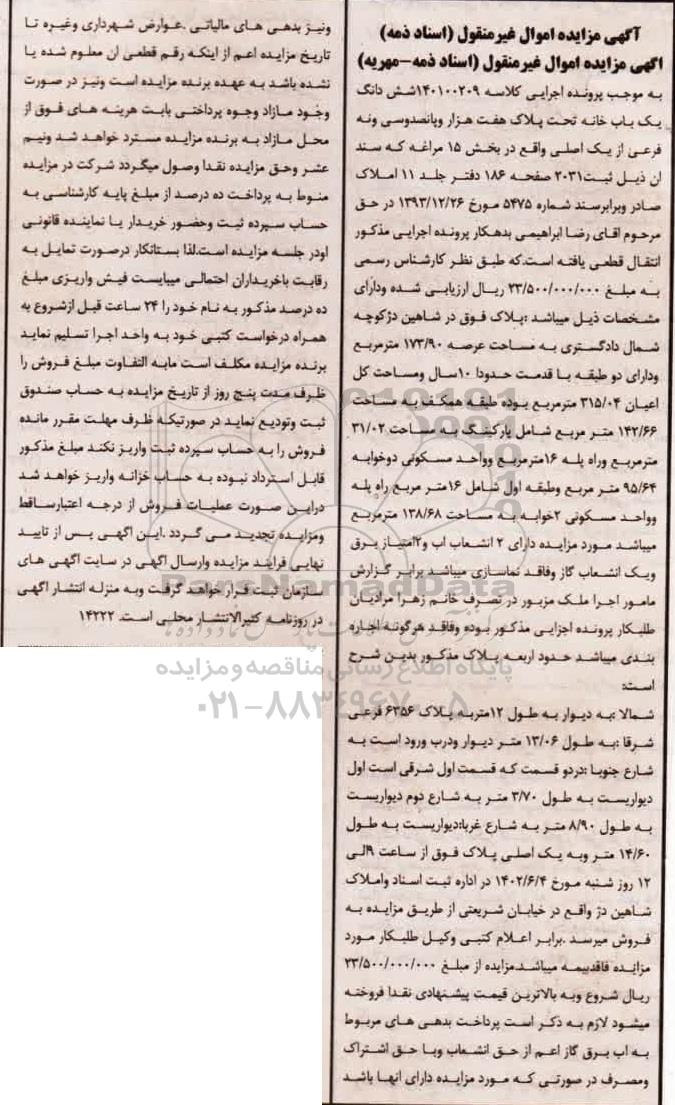 آگهی مزایده اموال غیرمنقول (اسناد ذمه)
اگهی مزایده اموال غیرمنقول (اسناد ذمه-مهریه)
به موجب پرونده اجرایی کلاسه ۱۴۰۱۰۰۲۰۹شش دانگ
یک باب خانه تحت پلاک هفت هزار وپانصدوسی ونه
فرعی از یک اصلی واقع در بخش ۱۵ مراغه که سند
ان ذیل ثبت۲۰۳۱ صفحه ۱۸۶ دفتر جلد ۱۱ املاک
صادر وبرابرسند شماره ۵۴۷۵ مورخ ۱۳۹۳/۱۲/۲۶ در حق
مرحوم اقای رضا ابراهیمی بدهکار پرونده اجرایی مذکور
انتقال قطعی یافته است.که طبق نظر کارشناس رسمی
به مبلغ ۲۳/۵۰۰/۰۰۰/۰۰۰ ریال ارزیابی شده ودارای
مشخصات ذیل میباشد :پلاک فوق در شاهین دژکوچه
شمال دادگستری به مساحت عرصه ۱۷۳/۹۰ مترمربع
ودارای دو طبقه با قدمت حدودا ۱۰سال ومساحت کل
اعیان ۳۱۵/۰۴ مترمربع بوده طبقه همکف به مساحت
۱۴۲/۶۶ متر مربع شامل پارکینگ به مساحت ۳۱/۰۲
مترمربع وراه پله ۱۶مترمربع وواحد مسکونی دوخوابه
۹۵/۶۴ متر مربع وطبقه اول شامل ۱۶متر مربع راه پله
وواحد مسکونی ۲خوابه به مساحت ۱۳۸/۶۸ مترمربع
میباشد مورد مزایده دارای ۲ انشعاب اب و۲امتیاز برق
ویک انشعاب گاز وفاقد نماسازی میباشد برابر گزارش
مامور اجرا ملک مزبور در تصرف خانم زهرا مرادیان
طلبکار پرونده اجرایی مذکور بوده وفاقد هرگونه اجاره
بندی میباشد حدود اربعه پلاک مذکور بدین شرح
است:
شمالا :به دیوار به طول ۱۲متربه پلاک ۶۳۵۶ فرعی
شرقا :به طول ۱۳/۰۶ متر دیوار ودرب ورود است به
شارع جنوبا :دردو قسمت که قسمت اول شرقی است اول
دیواریست به طول ۳/۷۰ متر به شارع دوم دیواریست
به طول ۸/۹۰ متر به شارع غربا:دیواریست به طول
۱۴/۶۰ متر وبه یک اصلی پلاک فوق از ساعت ۹الی
۱۲ روز شنبه مورخ ۱۴۰۲/۶/۴ در اداره ثبت اسناد واملاک
شاهین دژ واقع در خیابان شریعتی از طریق مزایده به
فروش میرسد .برابر اعلام کتبی وکیل طلبکار مورد
مزایده فاقدبیمه میباشد.مزایده از مبلغ ۲۳/۵۰۰/۰۰۰/۰۰۰
ریال شروع وبه بالاترین قیمت پیشنهادی نقدا فروخته
میشود لازم به ذکر است پرداخت بدهی های مربوط
به اب برق گاز اعم از حق انشعاب ویا حق اشتراک
ومصرف در صورتی که مورد مزایده دارای انها باشد
ونیز بدهی های مالیاتی .عوارض شهرداری وغیره تا
تاریخ مزایده اعم از اینکه رقم قطعی ان معلوم شده یا
نشده باشد به عهده برنده مزایده است ونیز در صورت
وجود مازاد وجوه پرداختی بابت هزینه های فوق از
محل مازاد به برنده مزایده مسترد خواهد شد ونیم
عشر وحق مزایده نقدا وصول میگردد شرکت در مزایده
منوط به پرداخت ده درصد از مبلغ پایه کارشناسی به
حساب سپرده ثبت وحضور خریدار یا نماینده قانونی
اودر جلسه مزایده است.لذا بستانکار درصورت تمایل به
رقابت باخریداران احتمالی میبایست فیش واریزی مبلغ
ده درصد مذکور به نام خود را ۲۴ ساعت قبل ازشروع به
همراه درخواست کتبی خود به واحد اجرا تسلیم نماید
برنده مزایده مکلف است مابه التفاوت مبلغ فروش را
ظرف مدت پنج روز از تاریخ مزایده به حساب صندوق
ثبت وتودیع نماید در صورتیکه ظرف مهلت مقرر مانده
فروش را به حساب سپرده ثبت واریز نکند مبلغ مذکور
قابل استرداد نبوده به حساب خزانه واریز خواهد شد
دراین صورت عملیات فروش از درجه اعتبارساقط
ومزایده تجدید می گردد .این آگهی پس از تایید
نهایی فرایند مزایده وارسال آگهی در سایت آگهی های
سازمان ثبت قرار خواهد گرفت وبه منزله انتشار آگهی
در روزنامه کثیرالانتشار محلی است. ۱۴۲۲۲
ParsNamadData
پایگاه اطلاع رسانی مناقصه و مزایده
۰۲۱-۸۸۳۴۹۶۷۰-۵